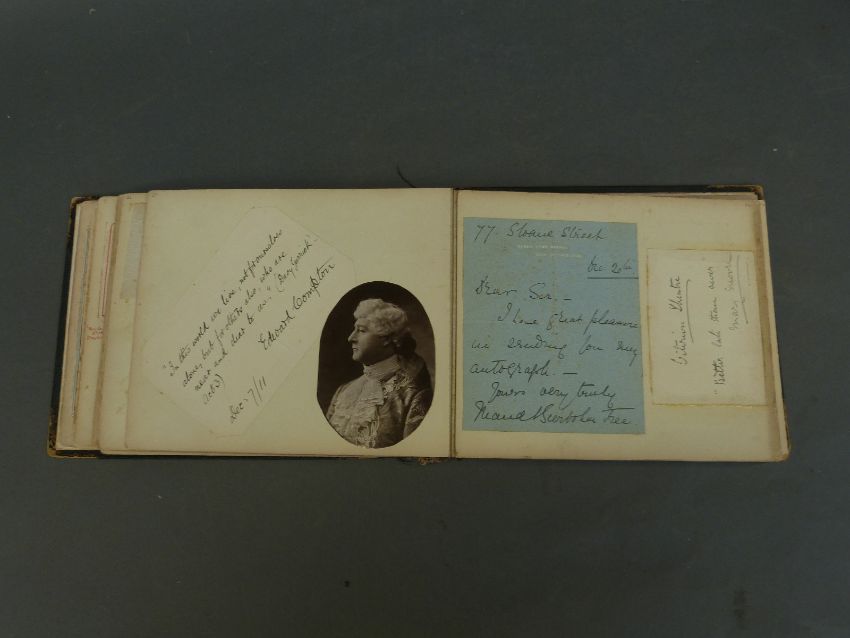 "In this world we live, not for ourselves
alone, but for others also, who are
near and dear to us." (Davy Garrick.
Act 3)
Edward Compton
Dec: 7/11
77. Sloane Street
Dec 20th
Dear Sir, -
I have great pleasure
in sending you my
autograph. -
Yours very truly
Maud Beerbohm Tree
Criterion Theatre
"Better late than never"
Mary Moore